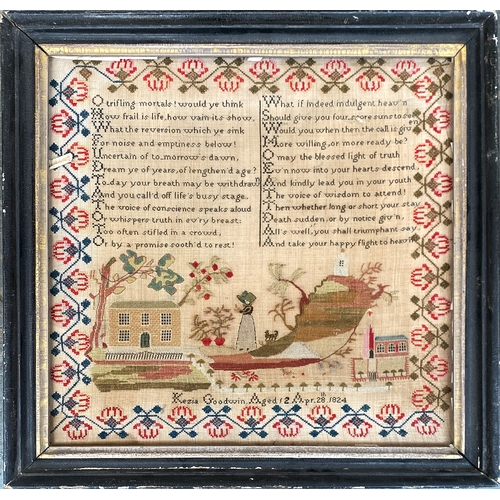 O trifling mortals! would ye think
How frail is life, how vain its show.
What the reversion which ye sink
For noise and emptiness below!
Uncertain of to,morrow's dawn,
Dream ye of years, of lengthen'd age?
To,day your breath may be withdrawn
And you call'd off life's busy stage.
The voice of conscience speaks aloud
Or whispers truth in ev'ry breast;
Too often stifled in a crowd,
Or by a promise sooth'd to rest!
What if indeed indulgent heav'n
Should give you four score suns to see
Would you when then the call is giv'en
More willing, or more ready be?
O may the blessed light of truth
E'en now into your hearts descend,
And kindly lead you in your youth
The voice of wisdom to attend!
Then whether long or short your stay
Death sudden, or by notice giv'n,
All's well, you shall triumphant say
And take your happy flight to heav'n
Kezia Goodwin, Aged 12 Apr, 28, 1824